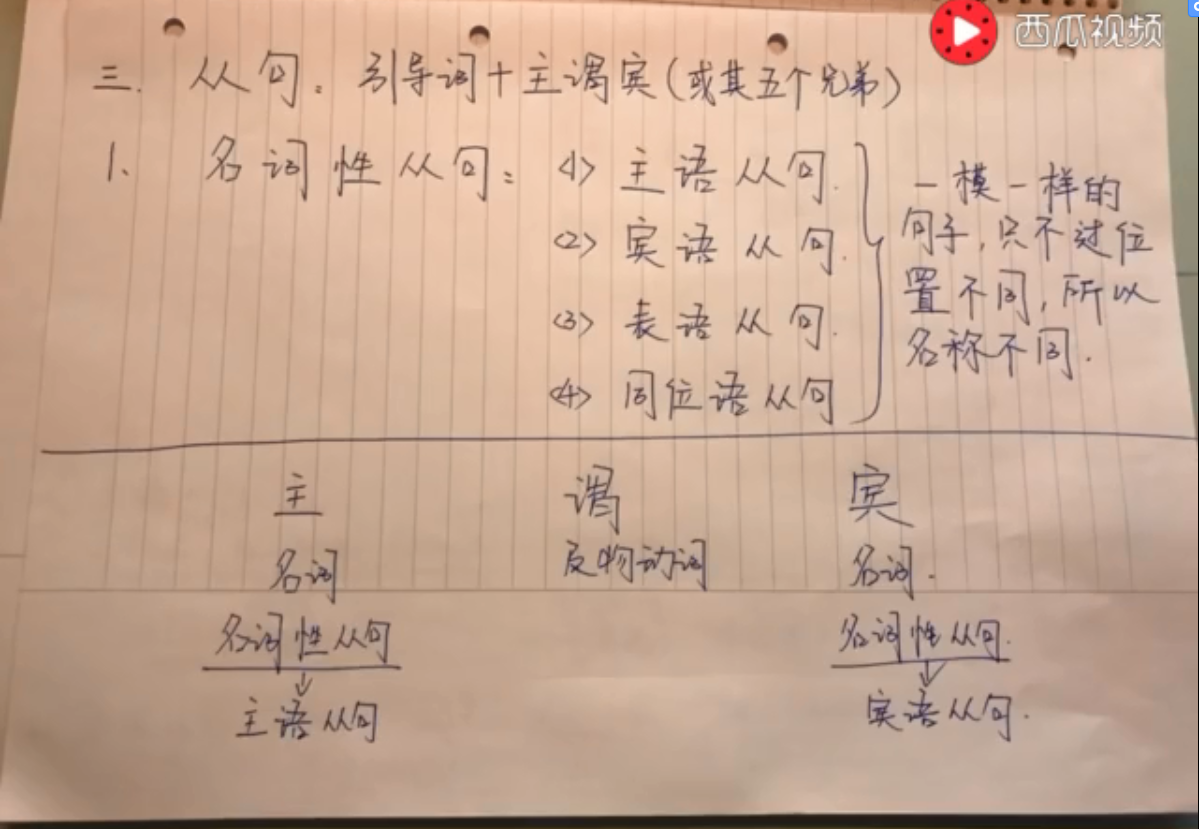 西瓜视频
三. 从句: 引导词+主谓宾(或其五个兄弟)
1. 名词性从句: <1> 主语从句.
<2> 宾语从句.
<3> 表语从句.
<4> 同位语从句
一模一样的
句子,只不过位
置不同,所以
名称不同.
主 谓 宾
名词 及物动词 名词.
名词性从句 名词性从句.
↓ ↓
主语从句 宾语从句.